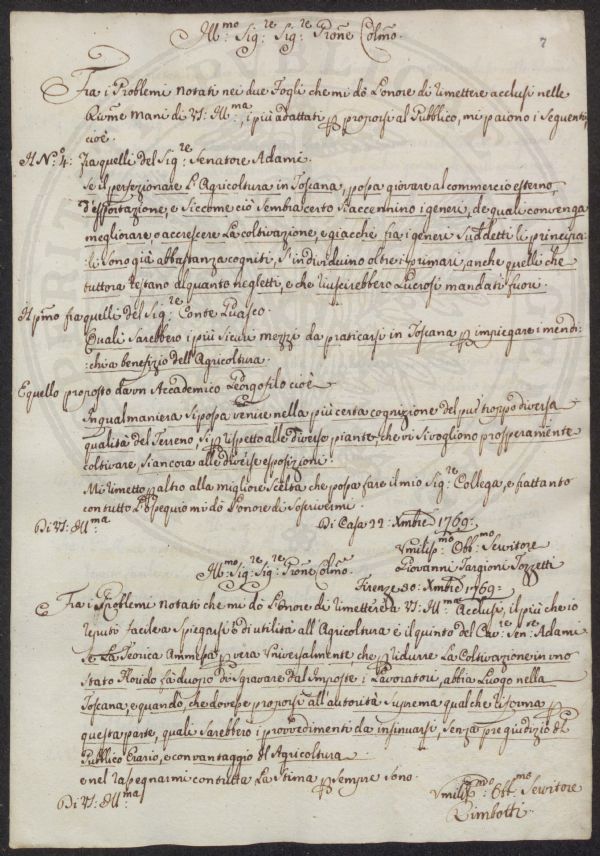 Ill.mo Sig:re Sig:re Prone Colmo.
7
Fra i Problemi notati nei due Fogli che mi dò l'onore di rimettere acclusi nelle
mani di VS: Ill:ma, i più adattati p proporsi al Pubblico, mi paiono i seguenti,
cioè.
Il N:o 4: fra quelli del Sig:re Senatore Adami.
Se il perfezionare l'Agricoltura in Toscana, possa giovare al commercio esterno,
d'esportazione, e siccome ciò sembra certo si accennino i generi, de quali convenga
megliorare o accrescere la coltivazione, e giacchè fra i generi suddetti li principa:
:li sono già abbastanza cogniti, s'individuino oltre i primari, anche quelli che
tuttora restano alquanto negletti, e che riuscirebbero lucrosi mandati fuori.
Il pmo fra quelli del Sig:re Conte Luasco.
Quali sarebbero i più sicuri mezzi da praticarsi in Toscana p impiegare i mendi:
:chi a benefizio dell'Agricoltura.
E quello proposto da un Accademico Georgofilo cioè
In qual maniera si possa venire nella più certa cognizione del pur troppo diversa
qualità del Terreno, si p rispetto alle diverse piante che vi si vogliono prosperamente
coltivare, si ancora alle diverse esposizioni.
Mi rimetto p altro alla migliore scelta che possa fare il mio Sig:re Collega, e frattanto
con tutto l'ossequio mi dò l'onore di soscrivermi
Di VS: Ill:ma
Di Casa 22: Xmbre 1769:
Umiliss:mo Obb:mo Servitore
Giovanni Targioni Tozzetti
Ill:mo Sig:re Sig:re Prone Colmo.
Firenze 30: Xmbre 1769:
Fra i Problemi notati che mi dò l'onore di rimettere a VS: Ill:ma Acclusi, il più che io
reputi facile a spiegarsi e di utilità all'Agricoltura è il quinto del Cav:re Sen:re Adami
Se la Teorica Ammessa p vera Universalmente, che p ridurre la Coltivazione in uno
stato florido fa duopo di sgravare dal Imposte i Lavoratori, abbia luogo nella
Toscana, e quando, che dovesse proporsi all'autorità suprema qualche riforma p
questa parte, quali sarebbero i provvedimenti da insinuarsi, senza pregiudizio del
Pubblico Erario, e con vantaggio del Agricoltura
e nel rassegnarmi con tutta la stima p sempre sono.
Di VS: Ill:ma
Umiliss:mo Obb:mo Servitore
Bimbotti